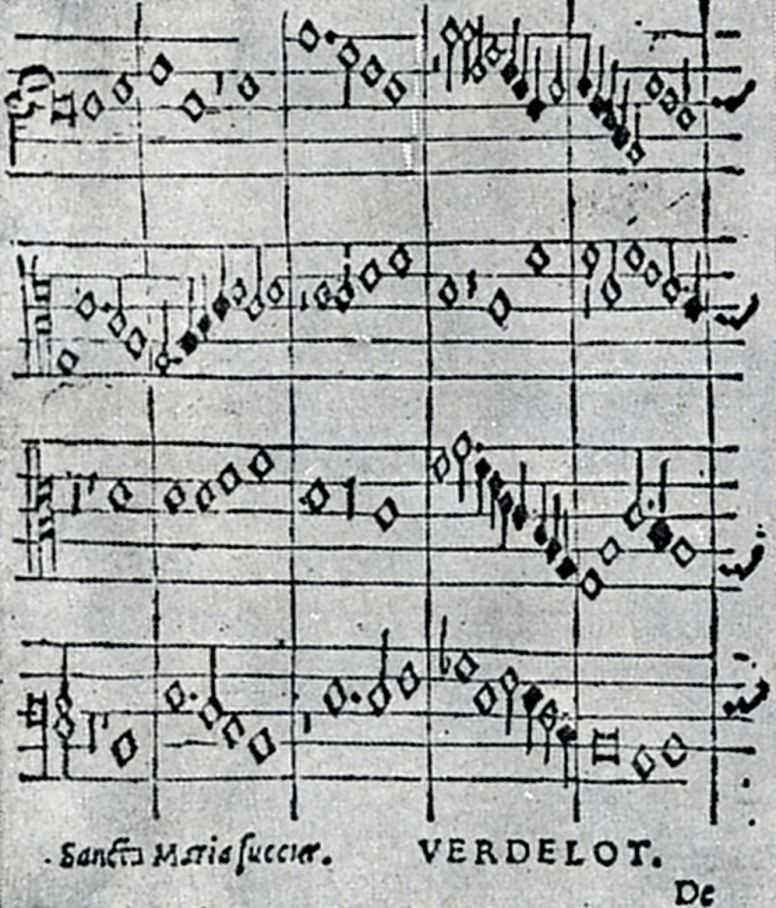 Sancta Maria succur.
VERDELOT.
De